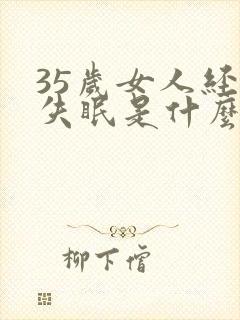 35歲女人経
失眠是什麼
柳下僧